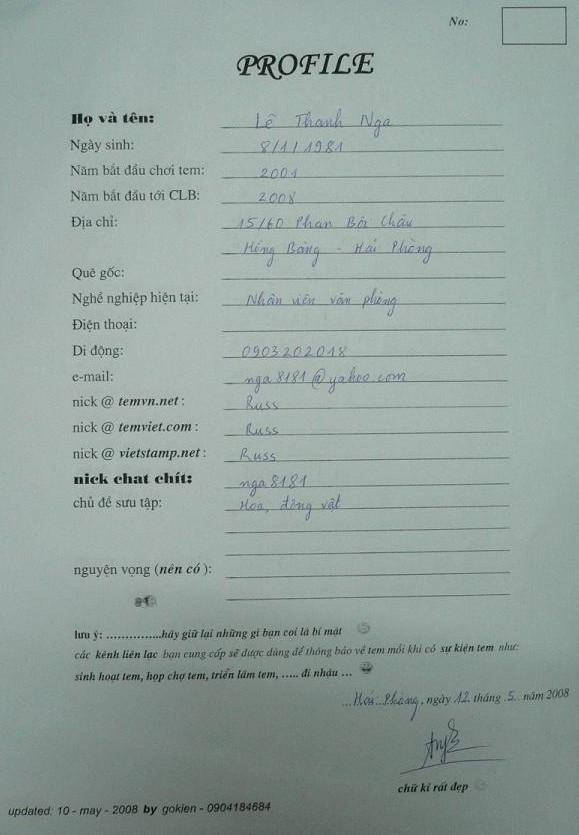 No:
PROFILE
Họ và tên: Lê Thanh Nga
Ngày sinh: 8/1/1981
Năm bắt đầu chơi tem: 2001
Năm bắt đầu tới CLB: 2008
Địa chỉ: 15/60 Phan Bội Châu
Hồng Bàng - Hải Phòng
Quê gốc:
Nghề nghiệp hiện tại: Nhân viên văn phòng
Điện thoại:
Di động: 0903202018
e-mail: nga8181@yahoo.com
nick @ temvn.net : Russ
nick @ temviet.com : Russ
nick @ vietstamp.net : Russ
nick chat chít: nga8181
chủ đề sưu tập: Hoa, động vật
nguyện vọng (nên có):
lưu ý: …………...hãy giữ lại những gì bạn coi là bí mật
các kênh liên lạc bạn cung cấp sẽ được dùng để thông báo về tem mỗi khi có sự kiện tem như:
sinh hoạt tem, họp chợ tem, triển lãm tem, ….. đi nhậu …
...Hải Phòng, ngày 12 tháng 5. năm 2008
chữ kí rất đẹp
updated: 10 - may - 2008 by gokien - 0904184684